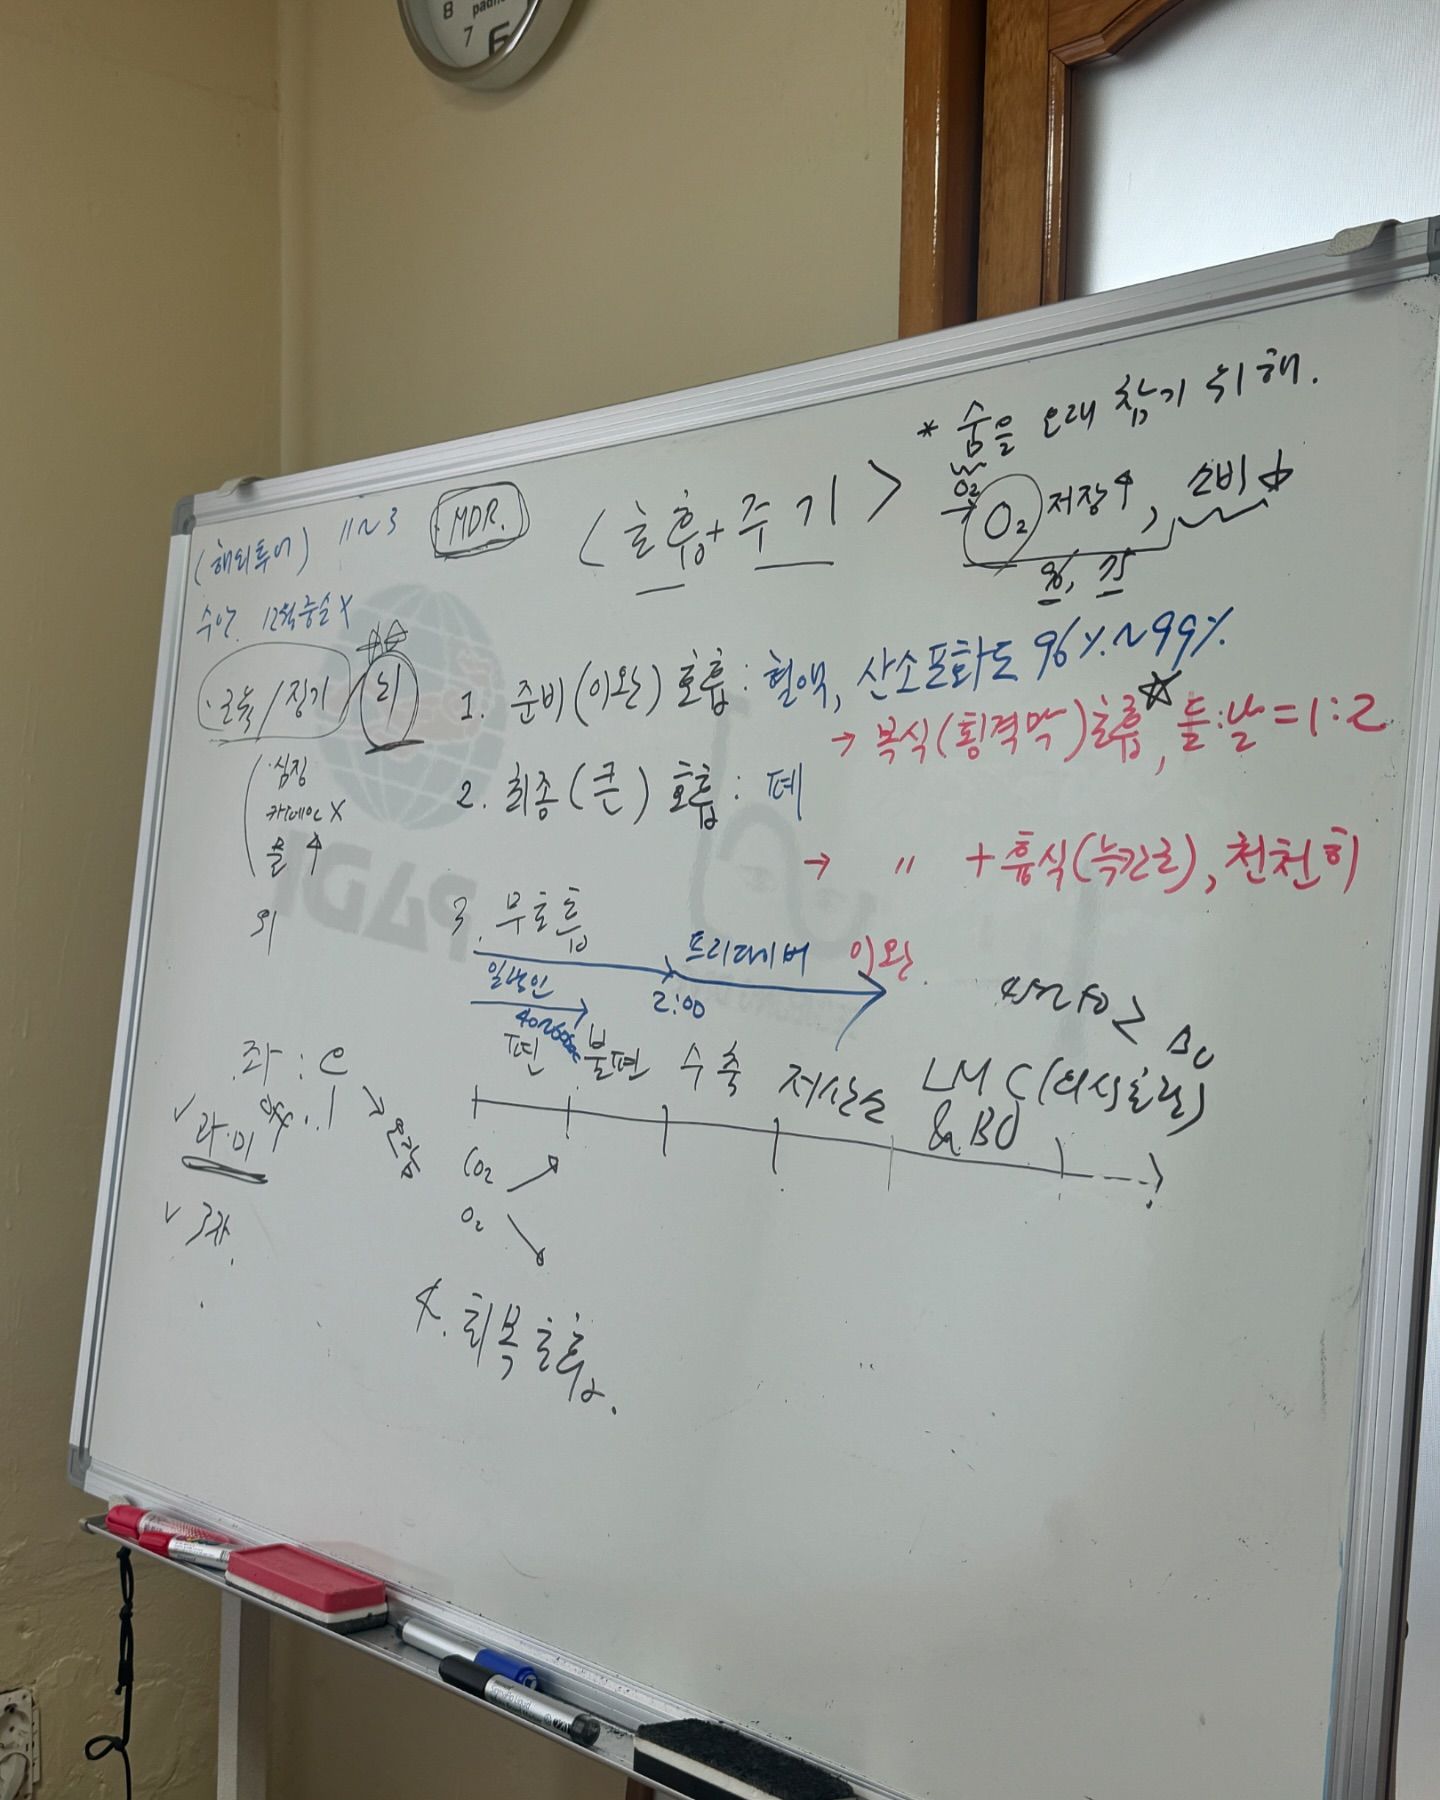 8
7
6
* 숨을 오래 참기 위해.
O₂
O₂ 저장↑, 소비↓
(해외투어) 11~3
MDR.
<호흡+주기>
수안. 12월중순X
·근육/장기/뇌
1. 준비(이완) 호흡: 혈액, 산소포화도 96%~99%
→ 복식(횡격막)호흡☆, 들:날=1:2
·심장
카페인X
물↑
2. 최종(큰) 호흡: 폐
→ 〃 + 흉식(늑간근), 천천히
위
PADI
3. 무호흡
프리다이버
이완.
일반인
2:00
40~60sec
편
불편
수축
저산소
LMC(의식흐림)
& BO
좌:
CO₂ ↗
O₂ ↘
4. 회복호흡.